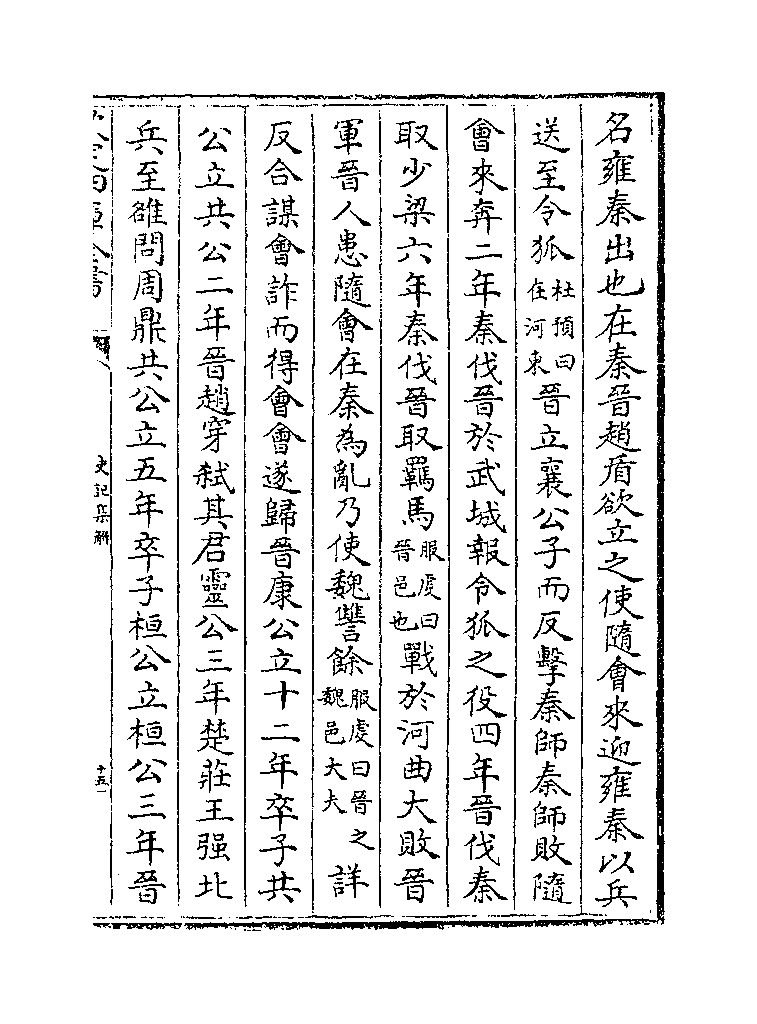 名雍秦出也在秦晉趙盾欲立之使隨會來迎雍秦以兵
送至令狐杜預曰在河東晉立襄公子而反擊秦師秦師敗隨
會來奔二年秦伐晉於武城報令狐之役四年晉伐秦
取少梁六年秦伐晉取羈馬服虔曰晉邑也戰於河曲大敗晉
軍晉人患隨會在秦為亂乃使魏讐餘服虔曰晉之魏邑大夫詳
反合謀會詐而得會會遂歸晉康公立十二年卒子共
公立共公二年晉趙穿弑其君靈公三年楚莊王强北
兵至雒問周鼎共公立五年卒子桓公立桓公三年晉
史記集解
十五